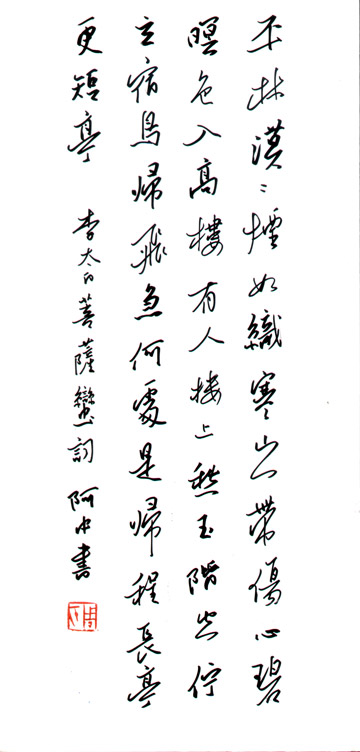 平林漠〻煙如織寒山一帶傷心碧
暝色入高樓有人樓上愁玉階空佇
立宿鳥歸飛急何處是歸程長亭
更短亭 李太白菩薩蠻詞 阿中書